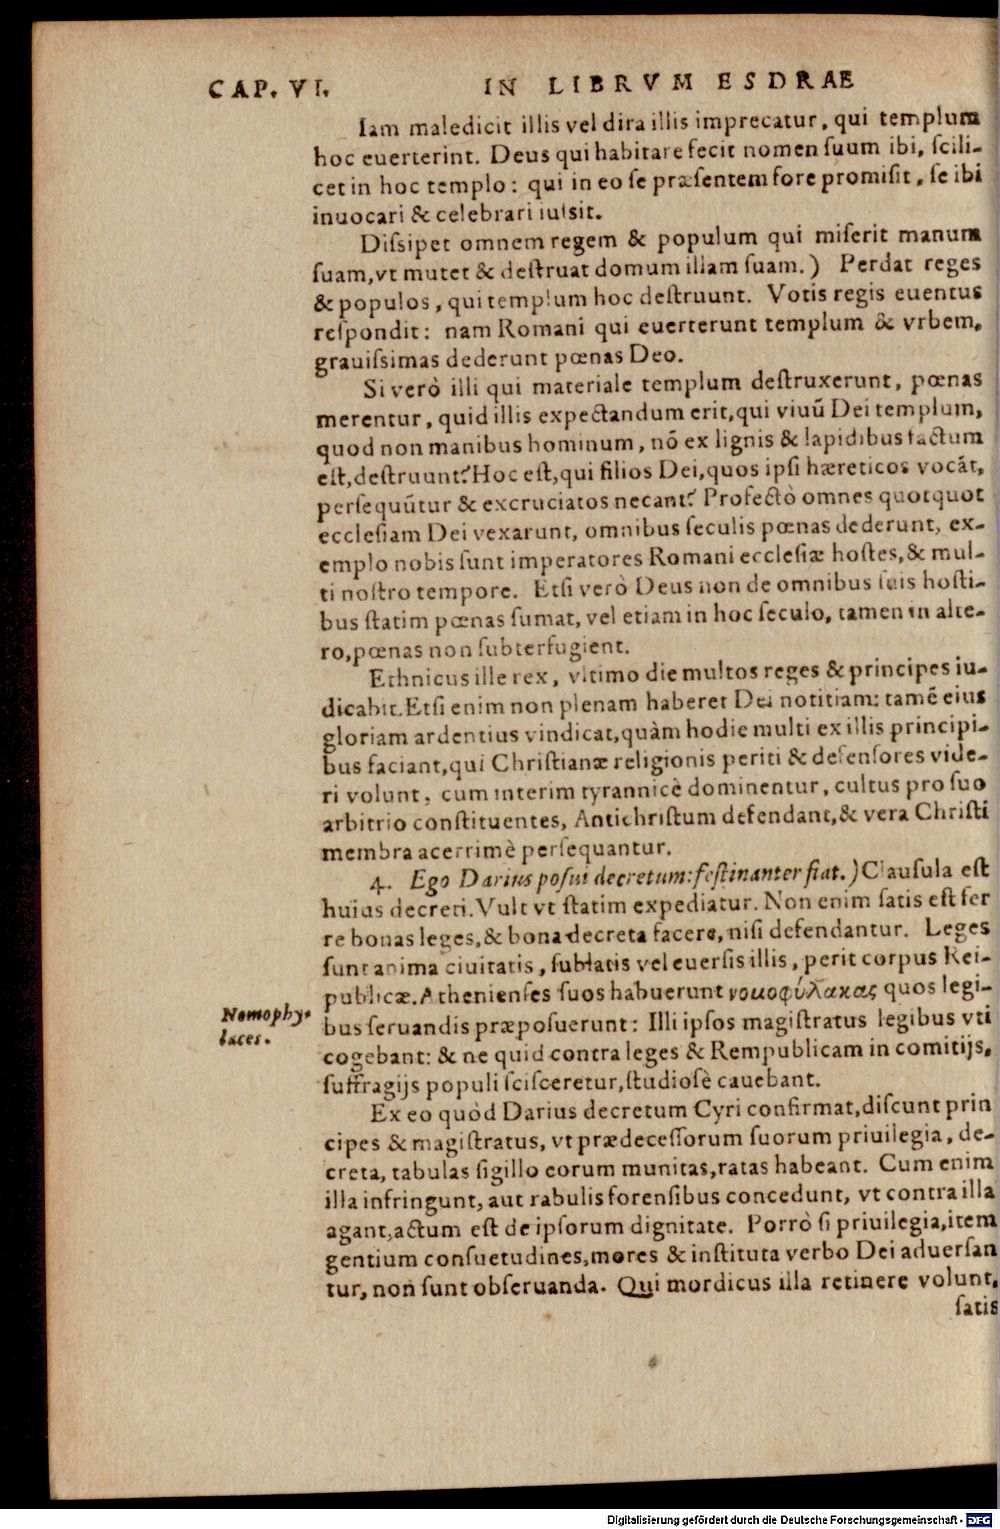 CAP. VI. IN LIBRVM ESDRAE
Iam maledicit illis vel dira illis imprecatur, qui templum
hoc euerterint. Deus qui habitare fecit nomen suum ibi, scili-
cet in hoc templo: qui in eo se præsentem fore promisit, se ibi
inuocari & celebrari iussit.
Dissipet omnem regem & populum qui miserit manum
suam, vt mutet & destruat domum illam suam.) Perdat reges
& populos, qui templum hoc destruunt. Votis regis euentus
respondit: nam Romani qui euerterunt templum & vrbem,
grauissimas dederunt pœnas Deo.
Si verò illi qui materiale templum destruxerunt, pœnas
merentur, quid illis expectandum erit, qui viuũ Dei templum,
quod non manibus hominum, nõ ex lignis & lapidibus factum
est, destruunt? Hoc est, qui filios Dei, quos ipsi hæreticos vocãt,
persequũtur & excruciatos necant? Profectò omnes quotquot
ecclesiam Dei vexarunt, omnibus seculis pœnas dederunt, ex-
emplo nobis sunt imperatores Romani ecclesiæ hostes, & mul-
ti nostro tempore. Etsi verò Deus non de omnibus suis hosti-
bus statim pœnas sumat, vel etiam in hoc seculo, tamen in alte-
ro, pœnas non subterfugient.
Ethnicus ille rex, vltimo die multos reges & principes iu-
dicabit. Etsi enim non plenam haberet Dei notitiam: tamẽ eius
gloriam ardentius vindicat, quàm hodie multi ex illis principi-
bus faciant, qui Christianæ religionis periti & defensores vide-
ri volunt, cum interim tyrannicè dominentur, cultus pro suo
arbitrio constituentes, Antichristum defendant, & vera Christi
membra acerrimè persequantur.
4. Ego Darius posui decretum: festinanter fiat.) Clausula est
huius decreti. Vult vt statim expediatur. Non enim satis est fer
re bonas leges, & bona decreta facere, nisi defendantur. Leges
sunt anima ciuitatis, sublatis vel euersis illis, perit corpus Rei-
publicæ. Athenienses suos habuerunt νομοφύλακας quos legi-
Nomophy-
laces.
bus seruandis præposuerunt: Illi ipsos magistratus legibus vti
cogebant: & ne quid contra leges & Rempublicam in comitijs,
suffragijs populi scisceretur, studiosè cauebant.
Ex eo quòd Darius decretum Cyri confirmat, discunt prin
cipes & magistratus, vt prædecessorum suorum priuilegia, de-
creta, tabulas sigillo eorum munitas, ratas habeant. Cum enim
illa infringunt, aut rabulis forensibus concedunt, vt contra illa
agant, actum est de ipsorum dignitate. Porrò si priuilegia, item
gentium consuetudines, mores & instituta verbo Dei aduersan
tur, non sunt obseruanda. Qui mordicus illa retinere volunt,
satis
Digitalisierung gefördert durch die Deutsche Forschungsgemeinschaft - DFG